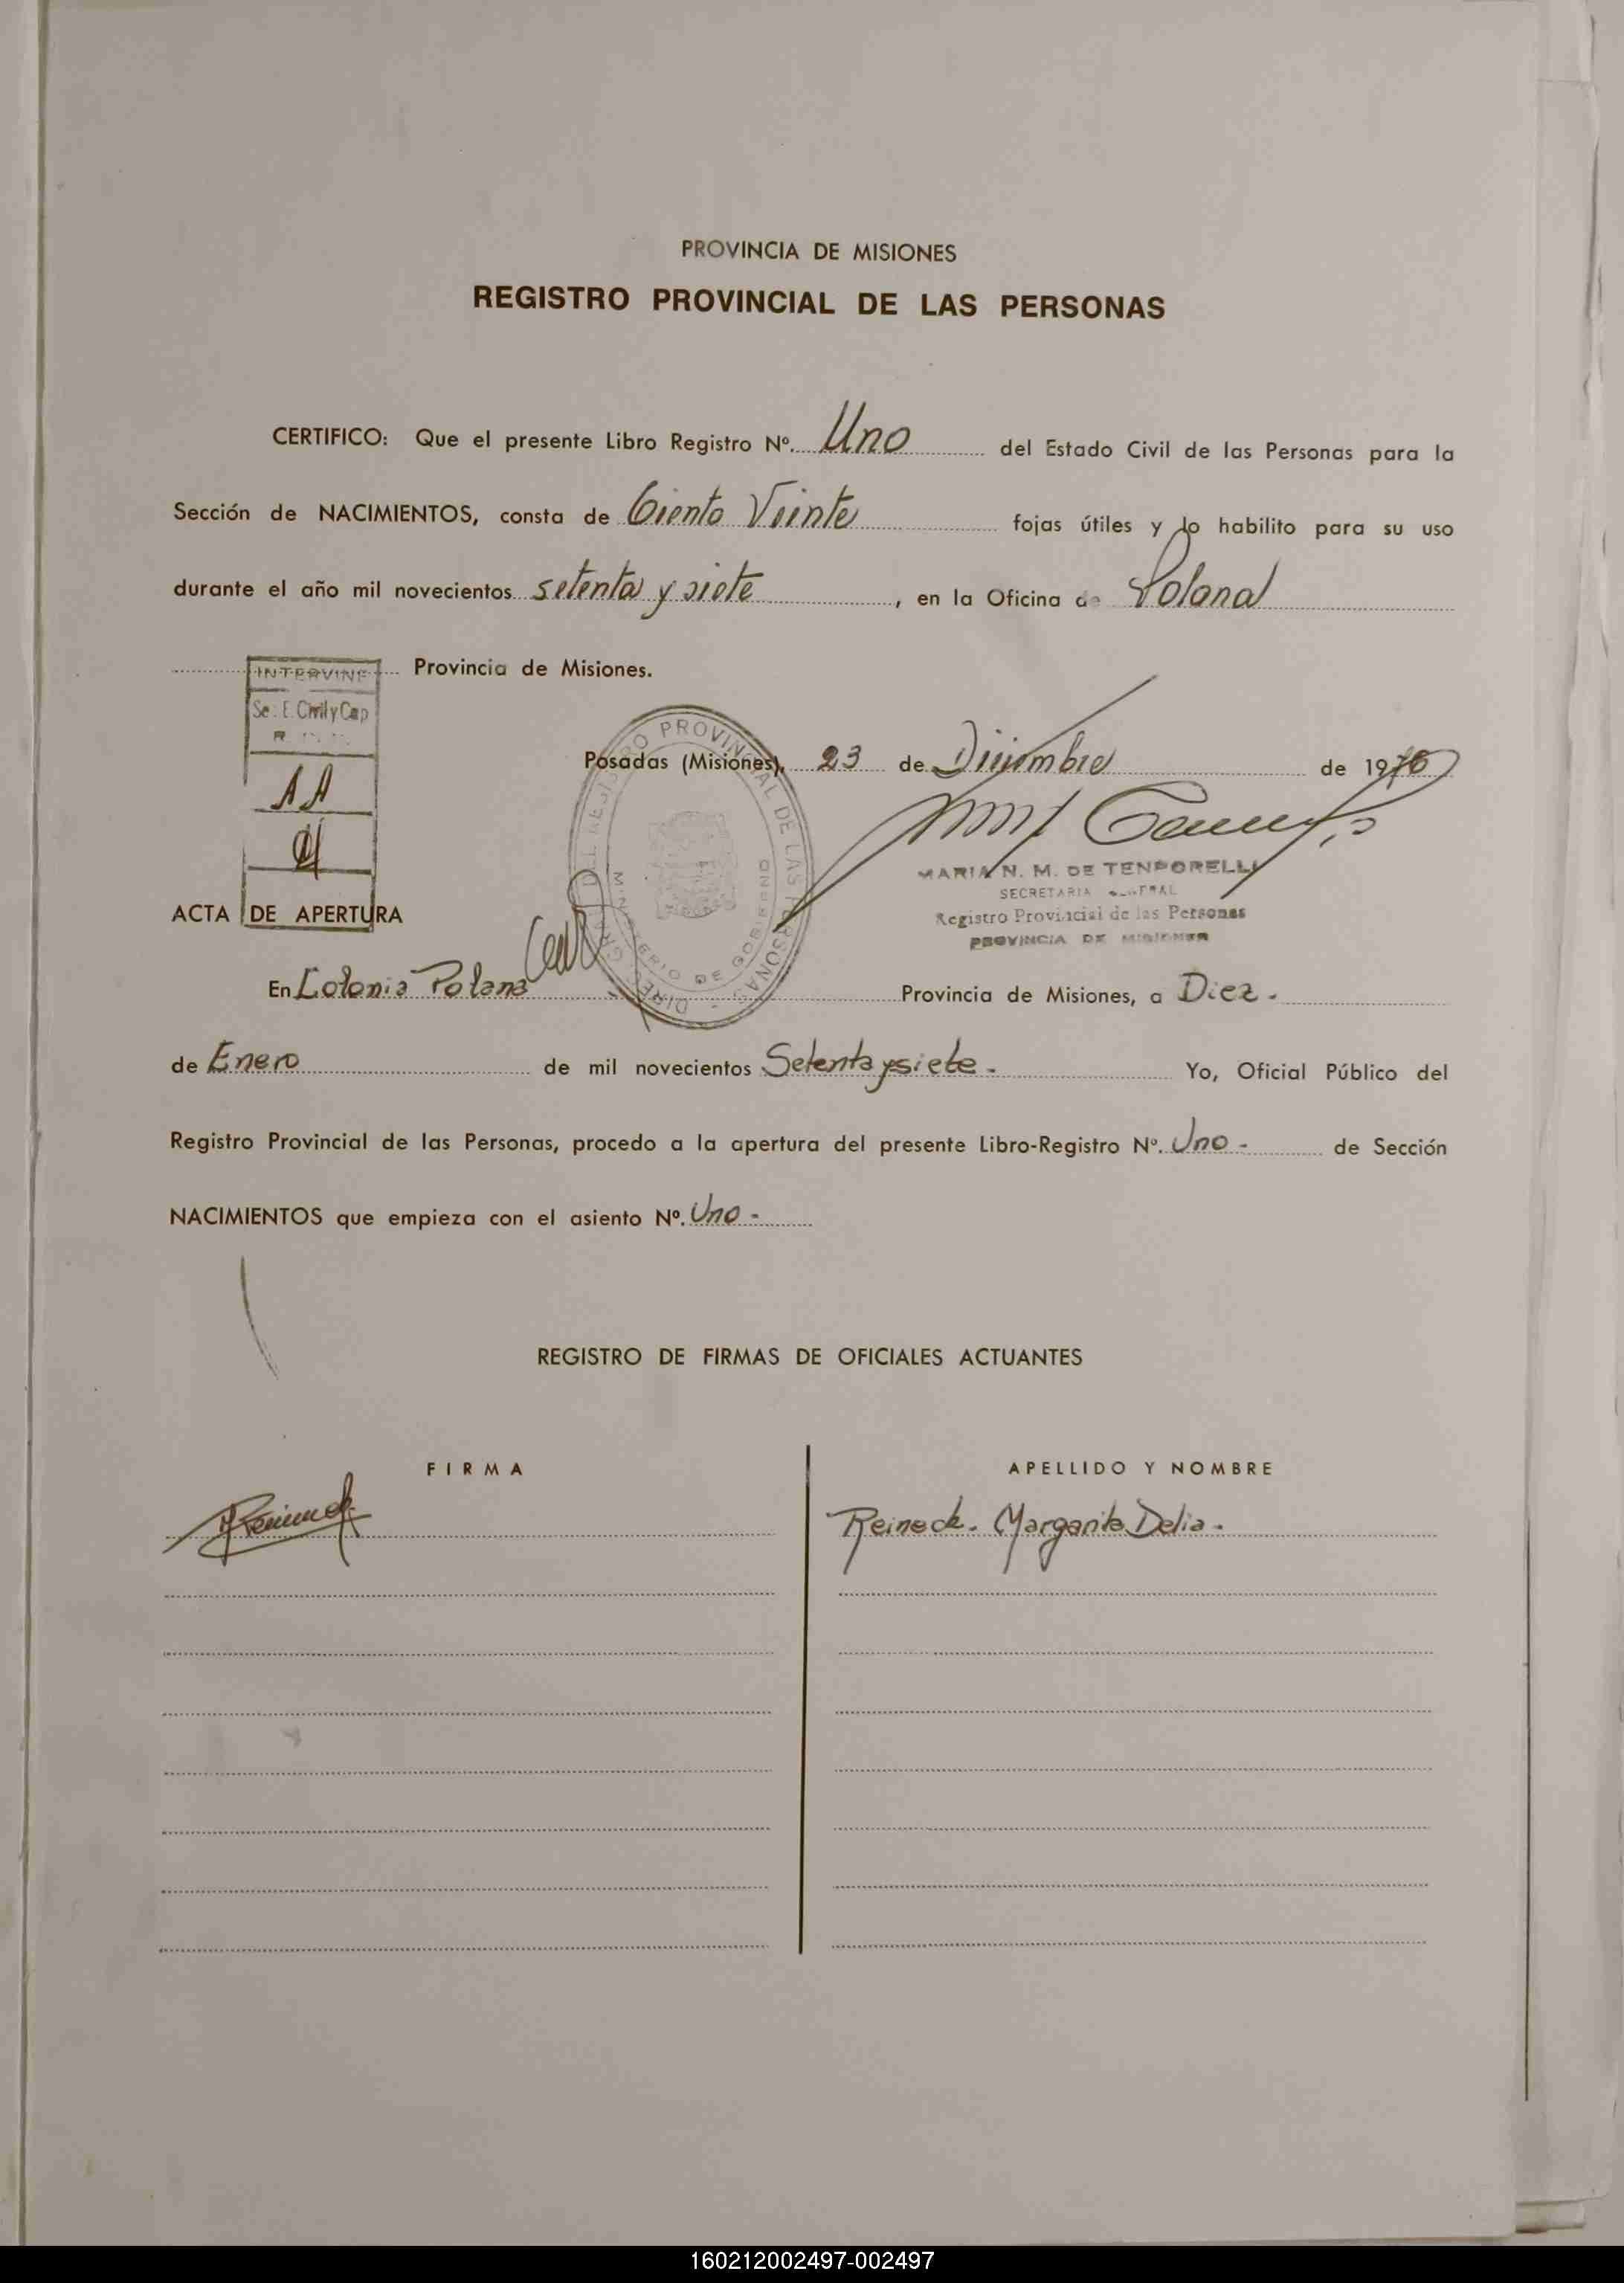 PROVINCIA DE MISIONES
REGISTRO PROVINCIAL DE LAS PERSONAS
CERTIFICO: Que el presente Libro Registro Nº. Uno del Estado Civil de las Personas para la
Sección de NACIMIENTOS, consta de Ciento Veinte fojas útiles y lo habilito para su uso
durante el año mil novecientos setenta y siete, en la Oficina de Polana
Provincia de Misiones.
INTERVINE
Se. E. Civil y Cap
Posadas (Misiones), 23 de Diciembre de 1976
MARIA N. M. DE TENPORELLI
SECRETARIA GENERAL
Registro Provincial de las Personas
PROVINCIA DE MISIONES
DIREC. GRAL. DEL REGISTRO PROVINCIAL DE LAS PERSONAS -
MINISTERIO DE GOBIERNO
ACTA DE APERTURA
En Colonia Polana Provincia de Misiones, a Diez.-
de Enero de mil novecientos Setenta y siete.- Yo, Oficial Público del
Registro Provincial de las Personas, procedo a la apertura del presente Libro-Registro Nº. Uno- de Sección
NACIMIENTOS que empieza con el asiento Nº. Uno-
REGISTRO DE FIRMAS DE OFICIALES ACTUANTES
FIRMA APELLIDO Y NOMBRE
Reineck. Margarita Delia.
160212002497-002497